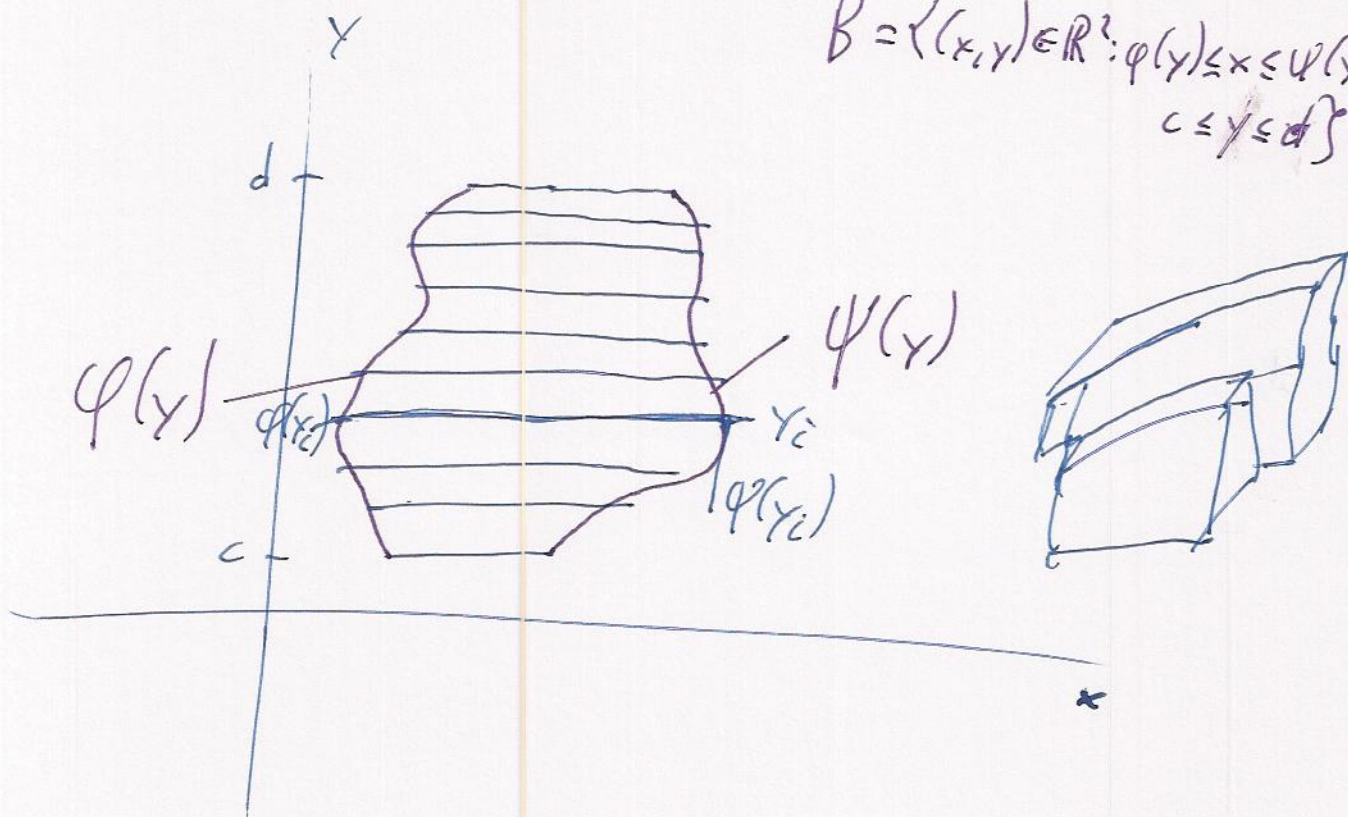 y
B = {(x,y)∈ℝ²: φ(y)≤x≤ψ(y
c ≤ y ≤ d}
d
ψ(y)
φ(y)
φ(y_i)
y_i
φ(y_i)
c
x